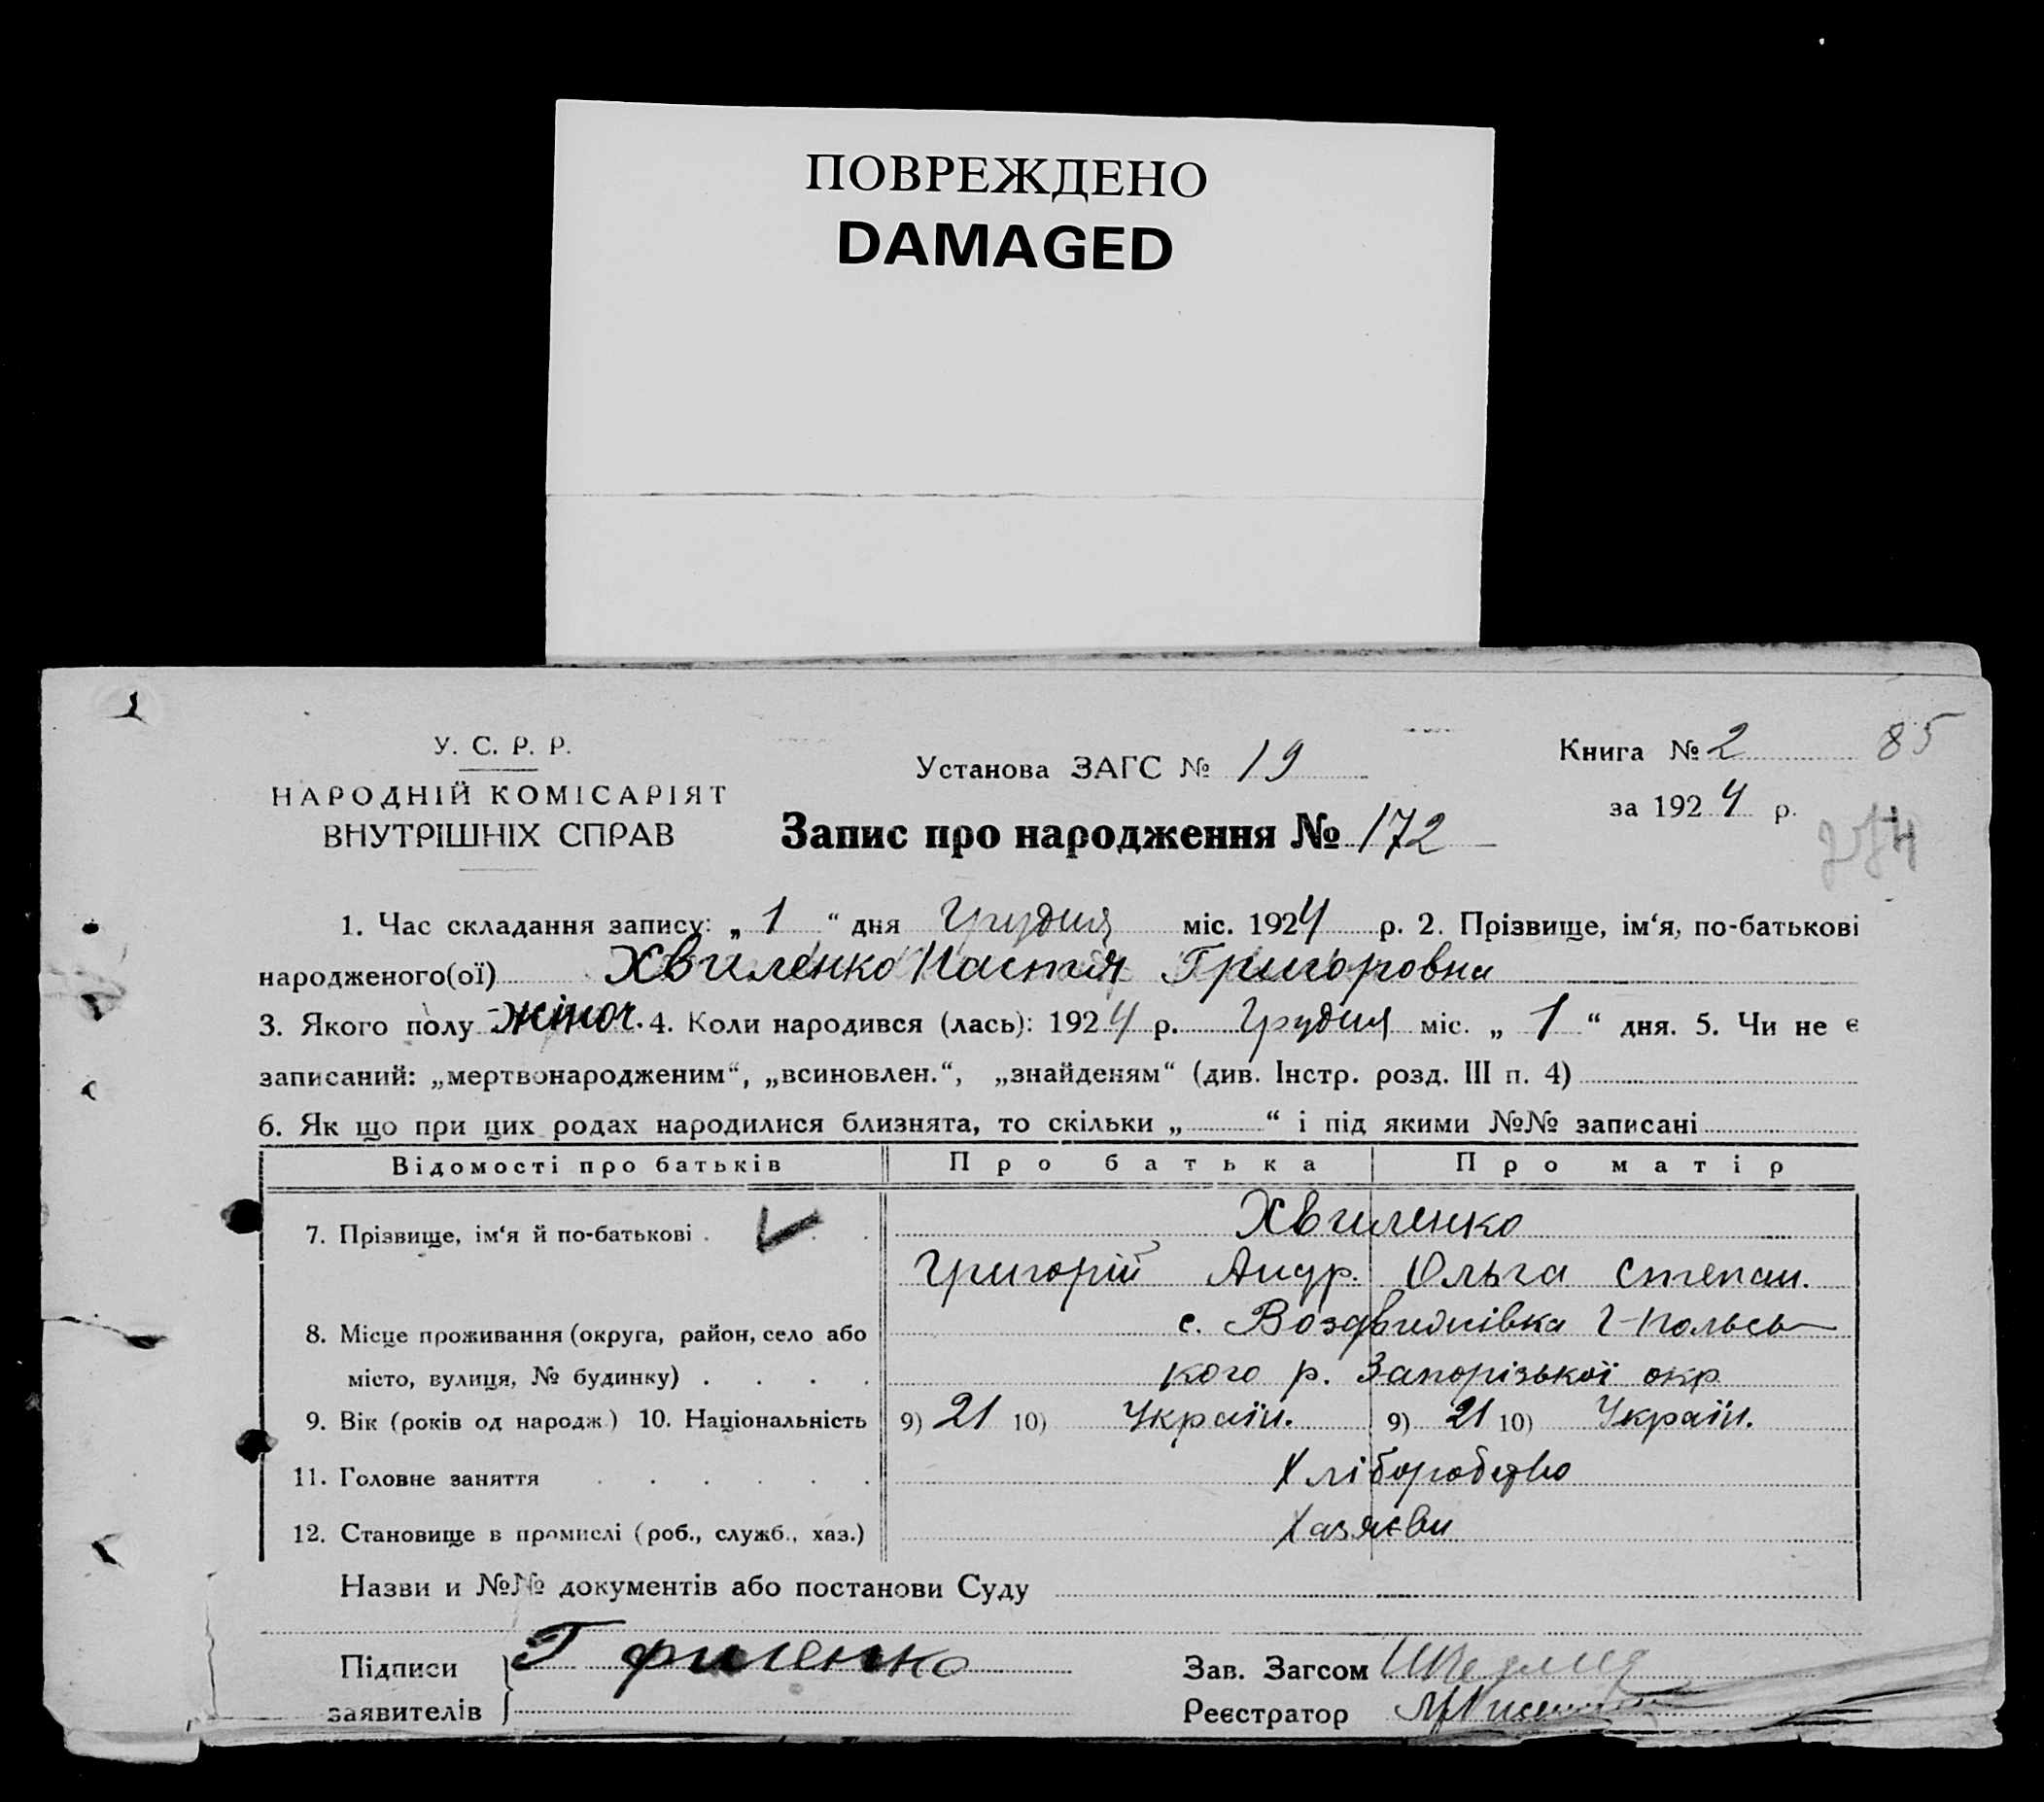 ПОВРЕЖДЕНО
DAMAGED
У. С. Р. Р.
НАРОДНІЙ КОМІСАРІЯТ
ВНУТРІШНІХ СПРАВ
Установа ЗАГС № 19
Запис про народження № 172
Книга № 2
85
за 1924 р.
1. Час складання запису: „ 1 “ дня Грудня міс. 1924 р. 2. Прізвище, ім‘я, по-батькові
народженого(ої) Хвиленко Настія Григоровна
3. Якого полу жіноч. 4. Коли народився (лась): 1924 р. Грудня міс. „ 1 “ дня. 5. Чи не є
записаний: „мертвонародженим“, „всиновлен.“, „знайденям“ (див. Інстр. розд. III п. 4)
6. Як що при цих родах народилися близнята, то скільки „ “ і під якими №№ записані
Відомості про батьків Про батька Про матір
7. Прізвище, ім‘я й по-батькові . . . Хвиленко
Григорій Андр. Ольга Степан.
8. Місце проживання (округа, район, село або с. Воздвижівка Г-польсь
місто, вулиця, № будинку) . . . . кого р. Запорізької окр
9. Вік (років од народж.) 10. Національність 9) 21 10) Україн. 9) 21 10) Україн.
11. Головне заняття . . . . . . Хліборобство
12. Становище в промислі (роб., служб., хаз.) Хазяєви
Назви и №№ документів або постанови Суду
Підписи
заявителів
Г
Зав. Загсом
Реєстратор